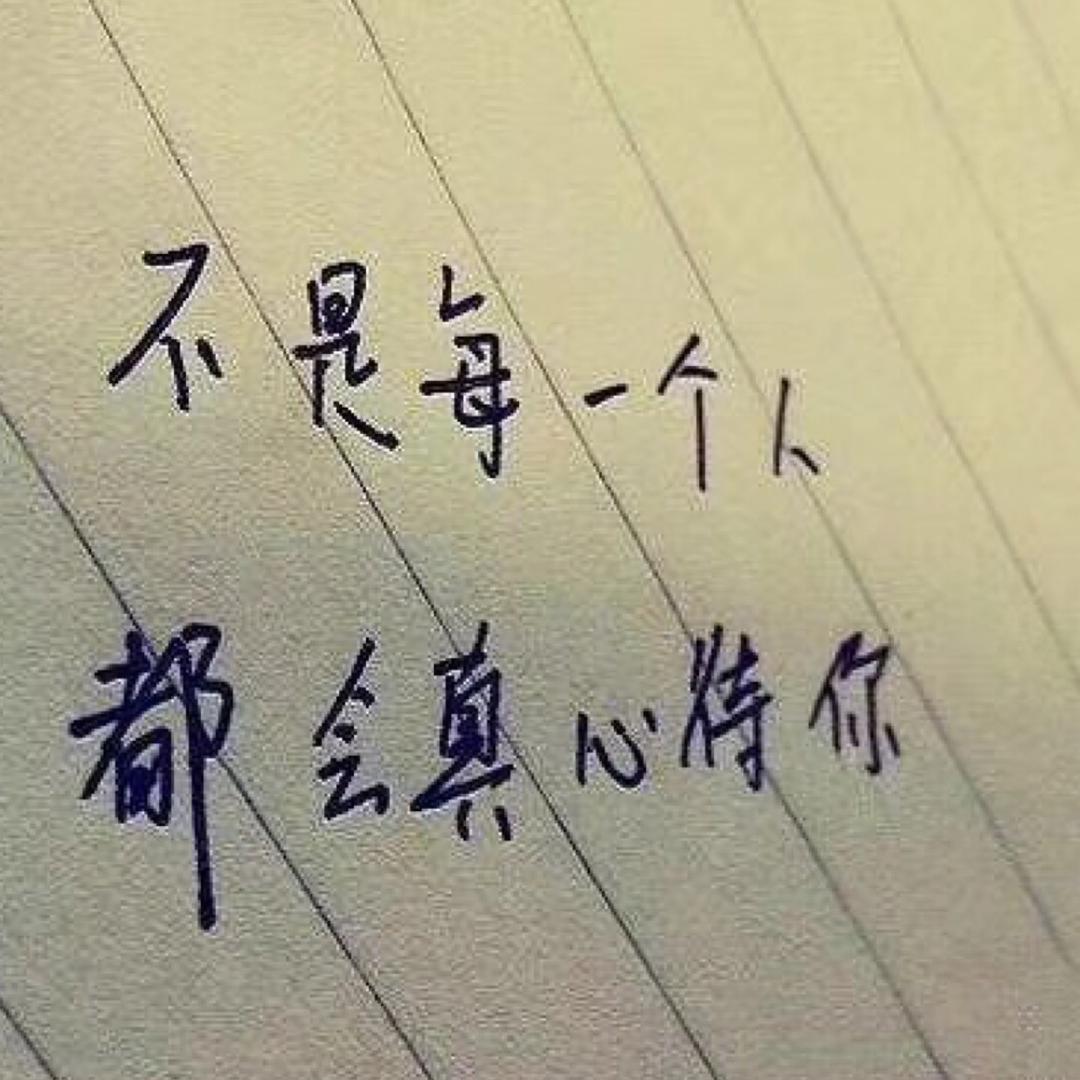 不是每一个人
都会真心待你